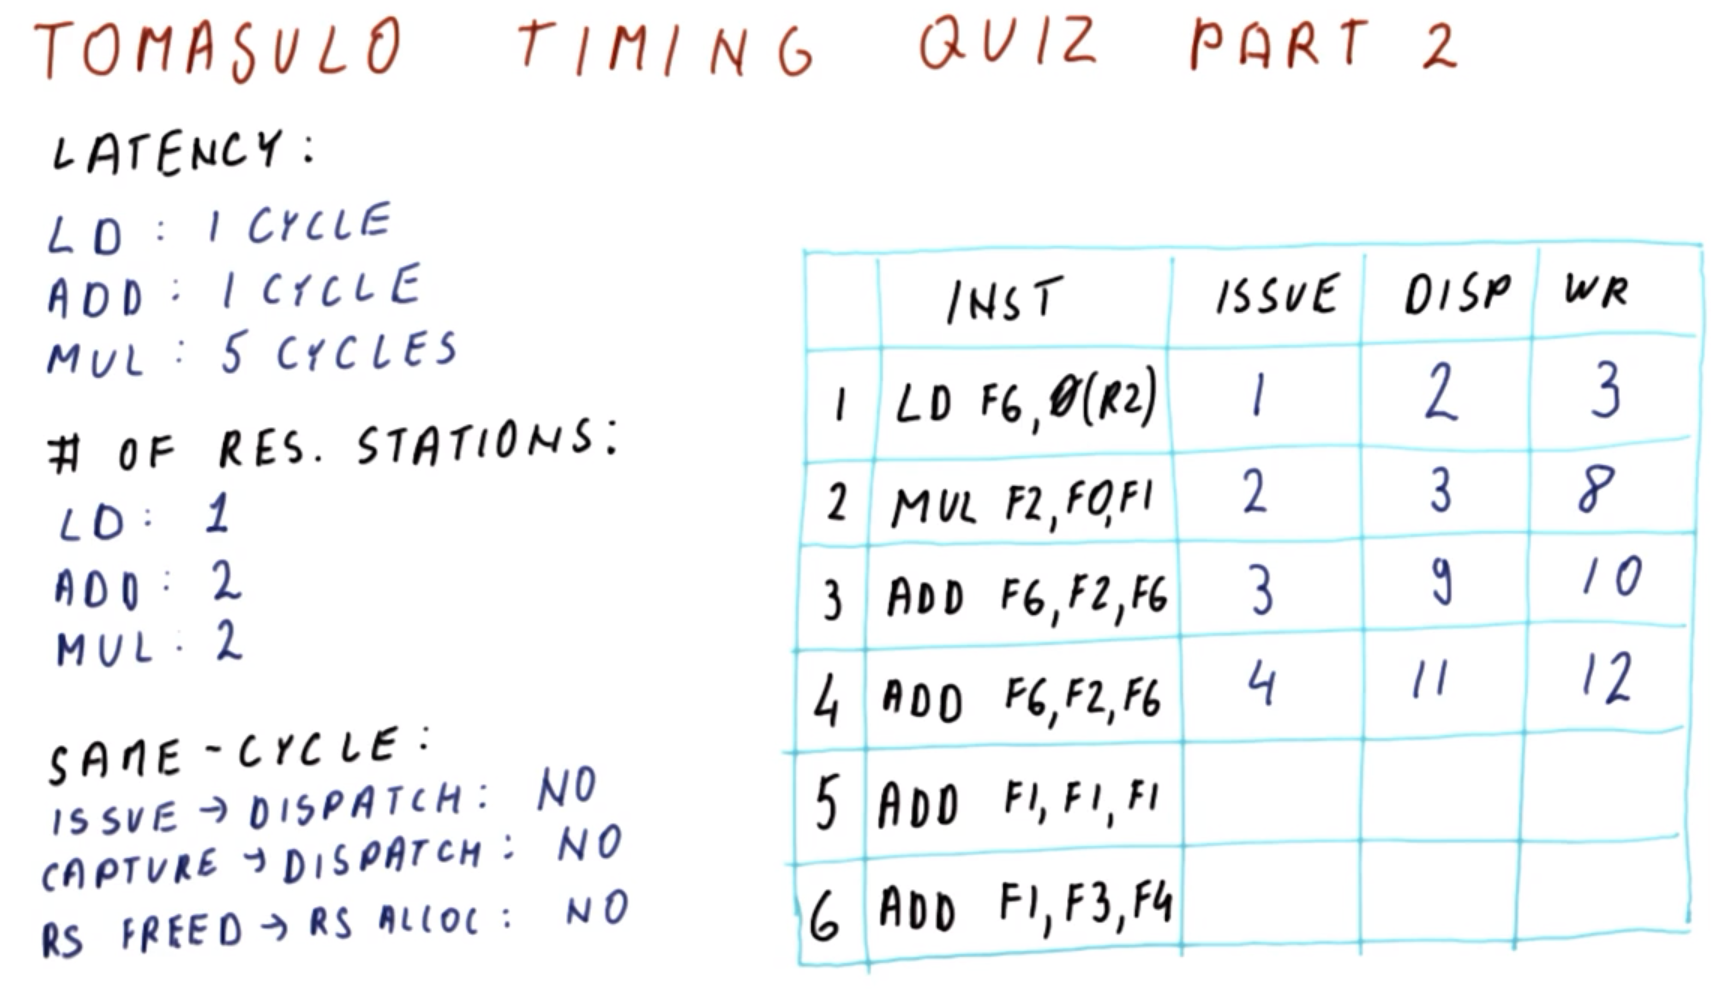 TOMASULO TIMING QUIZ PART 2
LATENCY:
LD: 1 CYCLE
ADD: 1 CYCLE
MUL: 5 CYCLES
# OF RES. STATIONS:
LD: 1
ADD: 2
MUL: 2
SAME-CYCLE:
ISSUE → DISPATCH: NO
CAPTURE → DISPATCH: NO
RS FREED → RS ALLOC: NO
INST ISSUE DISP WR
1 LD F6, 0(R2) 1 2 3
2 MUL F2, F0, F1 2 3 8
3 ADD F6, F2, F6 3 9 10
4 ADD F6, F2, F6 4 11 12
5 ADD F1, F1, F1
6 ADD F1, F3, F4